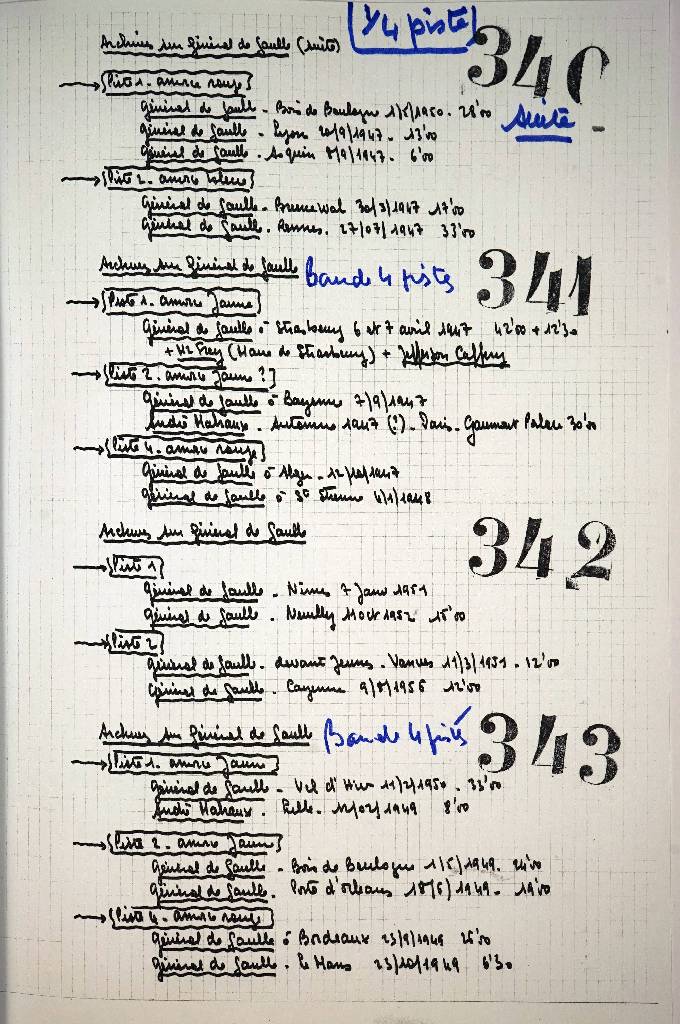 Archives sur Général de Gaulle (suite) [1/4 piste] 340 suite
→ [Piste 1. amorce rouge]
Général de Gaulle - Bois de Boulogne 1/5/1950 - 28'00
Général de Gaulle - Lyon 20/9/1947 - 13'00
Général de Gaulle - 8/9/1947 - 6'00
→ [Piste 2. amorce bleue]
Général de Gaulle - Bruneval 30/3/1947 17'00
Général de Gaulle. Rennes. 27/07/1947 33'00
Archives sur Général de Gaulle Bande 4 pistes 341
→ [Piste 1. amorce Jaune]
Général de Gaulle à Strasbourg 6 et 7 avril 1947 42'00 + 12'30
+ Mr Frey (Maire de Strasbourg) + Jefferson Caffery
→ [Piste 2. amorce Jaune?]
Général de Gaulle à Bayonne 7/9/1947
André Malraux. Automne 1947 (?) - Paris - Gaumont Palace 30'00
→ [Piste 4. amorce rouge]
Général de Gaulle à Alger - 12/10/1947
Général de Gaulle à St Etienne 4/1/1948
Archives sur Général de Gaulle 342
→ [Piste 1]
Général de Gaulle - Nîmes 7 Janv 1951
Général de Gaulle - Neuilly 11 oct 1952 15'00
→ [Piste 2]
Général de Gaulle. devant Jeunes - Vanves 11/3/1951 - 12'00
Général de Gaulle. Cayenne 9/8/1956 12'00
Archives sur Général de Gaulle Bande 4 pistes 343
→ [Piste 1. amorce Jaune]
Général de Gaulle - Vel d'Hiv 11/2/1950 - 33'00
André Malraux. Lille. 12/02/1949 8'00
→ [Piste 2. amorce Jaune]
Général de Gaulle - Bois de Boulogne 1/5/1949. 24'00
Général de Gaulle. Porte d'Orléans 18/6/1949 - 19'00
→ [Piste 4. amorce rouge]
Général de Gaulle à Bordeaux 25/9/1949 25'00
Général de Gaulle. Le Mans 23/10/1949 6'30